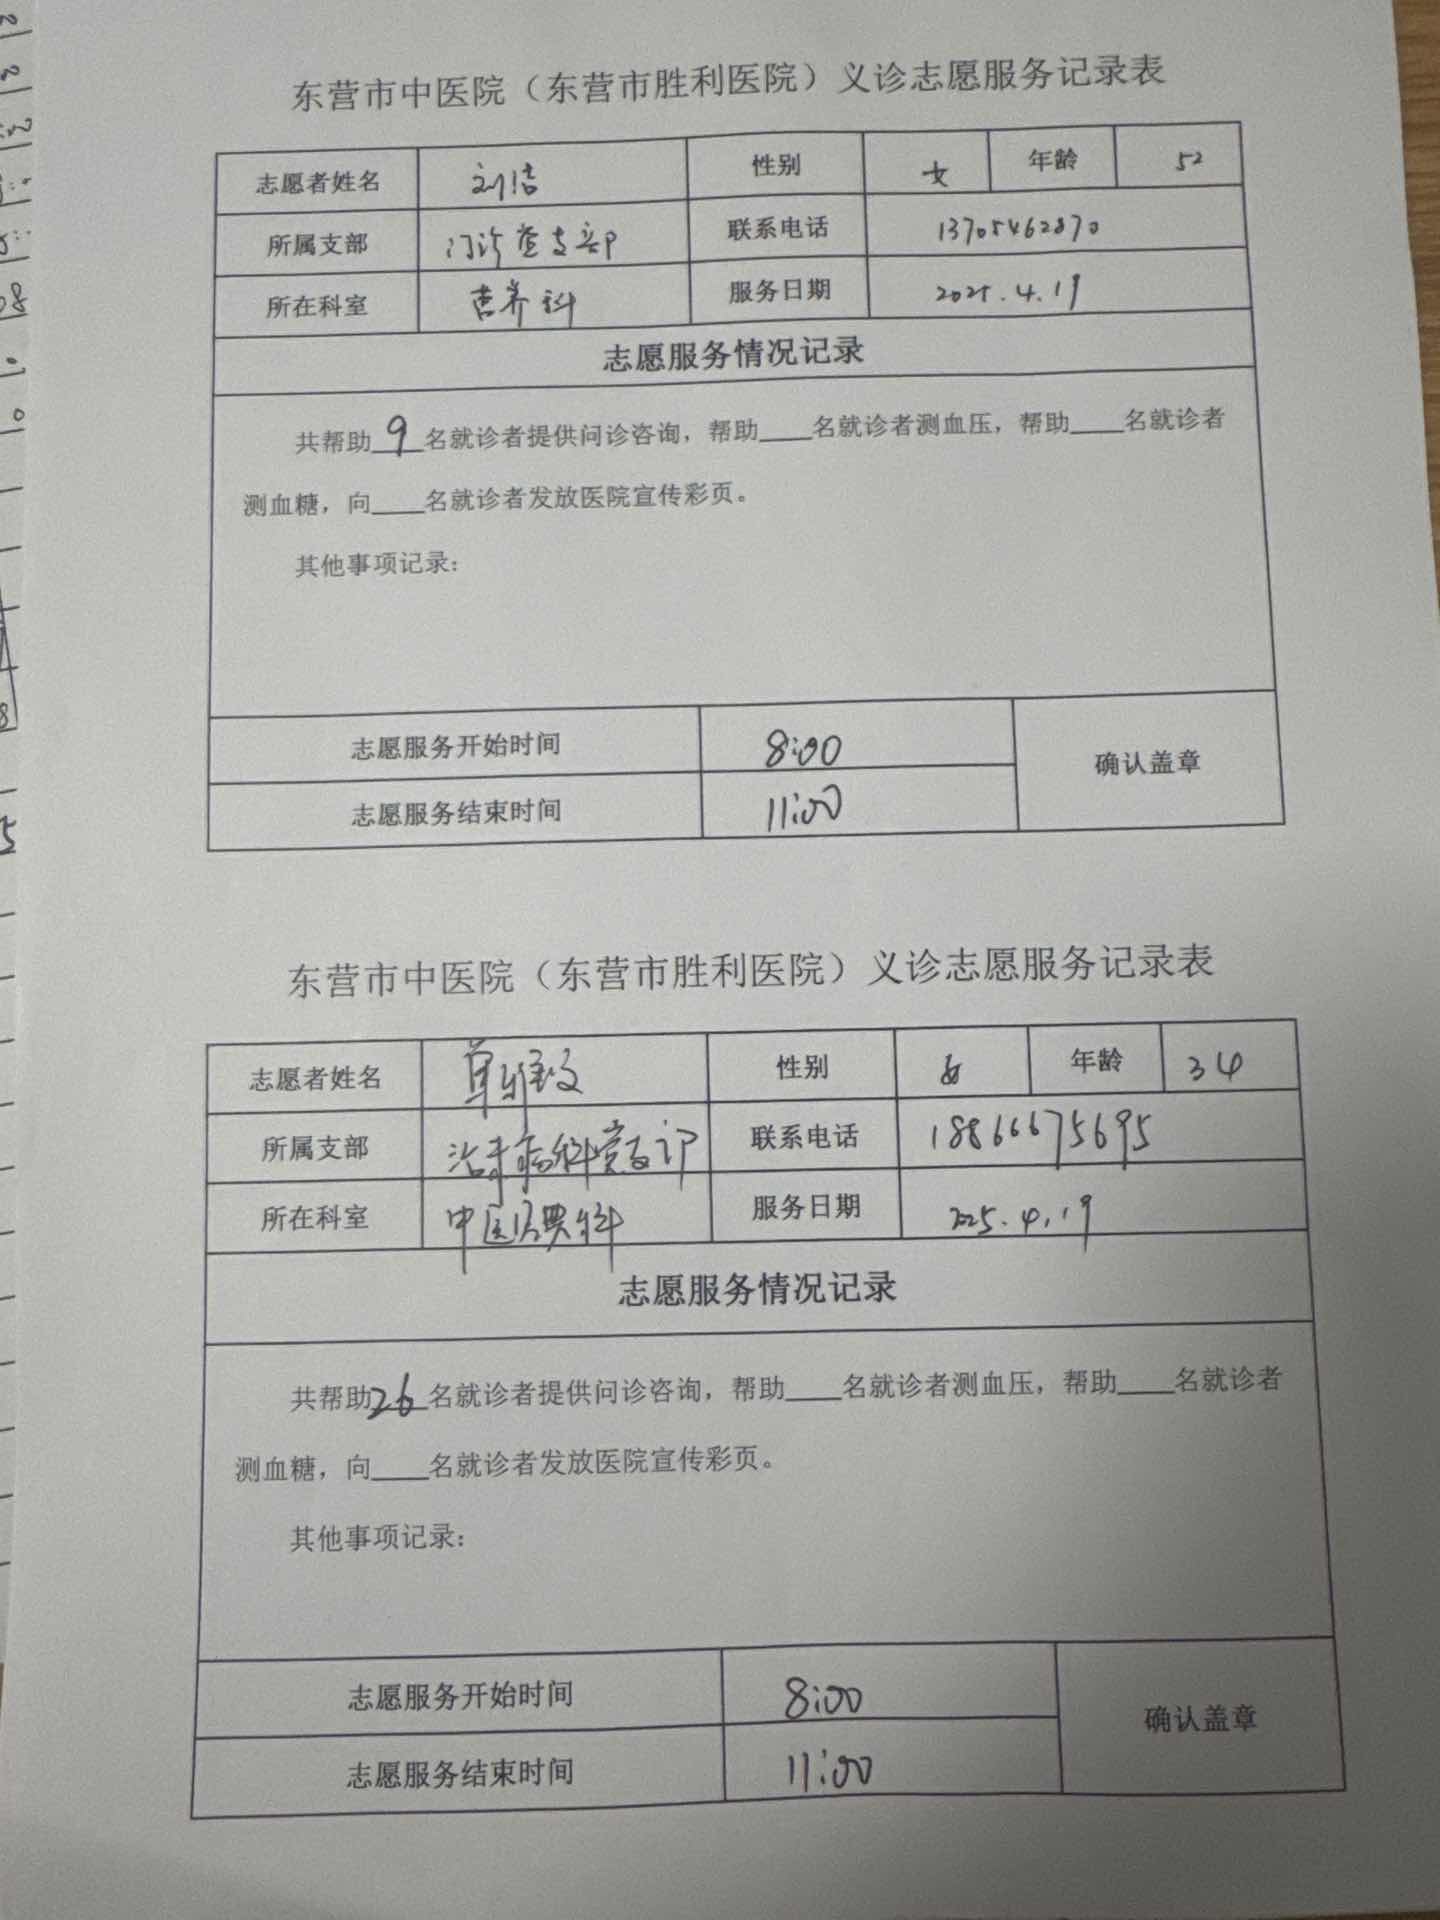 东营市中医院（东营市胜利医院）义诊志愿服务记录表
志愿者姓名 刘洁 性别 女 年龄 52
所属支部 门诊党支部 联系电话 13705462870
所在科室 营养科 服务日期 2025.4.19
志愿服务情况记录
共帮助9名就诊者提供问诊咨询，帮助____名就诊者测血压，帮助____名就诊者
测血糖，向____名就诊者发放医院宣传彩页。
其他事项记录：
志愿服务开始时间 8:00
确认盖章
志愿服务结束时间 11:00
东营市中医院（东营市胜利医院）义诊志愿服务记录表
志愿者姓名 单雅 性别 女 年龄 34
所属支部 治未病科党支部 联系电话 18866675695
所在科室 中医经典科 服务日期 2025.4.19
志愿服务情况记录
共帮助26名就诊者提供问诊咨询，帮助____名就诊者测血压，帮助____名就诊者
测血糖，向____名就诊者发放医院宣传彩页。
其他事项记录：
志愿服务开始时间 8:00
确认盖章
志愿服务结束时间 11:00